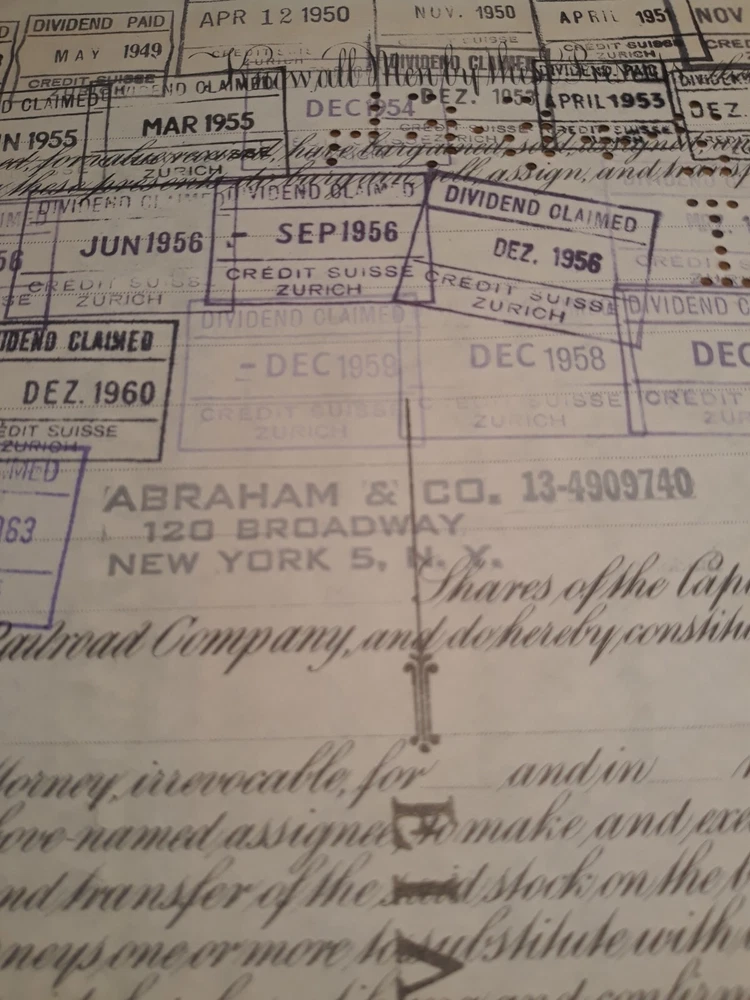 DIVIDEND PAID
MAY 1949
CREDIT SUISSE
APR 12 1950
NOV. 1950
APRIL 195
CREDIT SUISSE
NOV
CRE
Know all Men by th
D CLAIMED
N 1955
MAR 1955
ZURICH
DEC 1954
DEZ. 195
DIVIDEND PAID
APRIL 1953
DEZ.
ed, for value received, have bargained, sold, assigned
these presents do bargain, sell assign, and transf
56
SE
DIVIDEND CLAIMED
JUN 1956
CREDIT SUISSE
ZURICH
DIVIDEND CLAIMED
- SEP 1956
CREDIT SUISSE
ZURICH
DIVIDEND CLAIMED
DEZ. 1956
CREDIT SUISSE
ZURICH
IDEND CLAIMED
DEZ. 1960
EDIT SUISSE
ZURICH
DIVIDEND CLAIMED
- DEC 1959
CREDIT SUISSE
ZURICH
DEC 1958
CREDIT SUISSE
ZURICH
DIVIDEND CL
DEC
CREDIT
ZUR
MED
63
ABRAHAM & CO. 13-4909740
120 BROADWAY
NEW YORK 5, N. Y.
Shares of the Capi
Railroad Company, and do hereby constitu
torney, irrevocable, for and in
ove-named assignee to make and exe
nd transfer of the said stock on the b
neys one or more to substitute with
and confirm